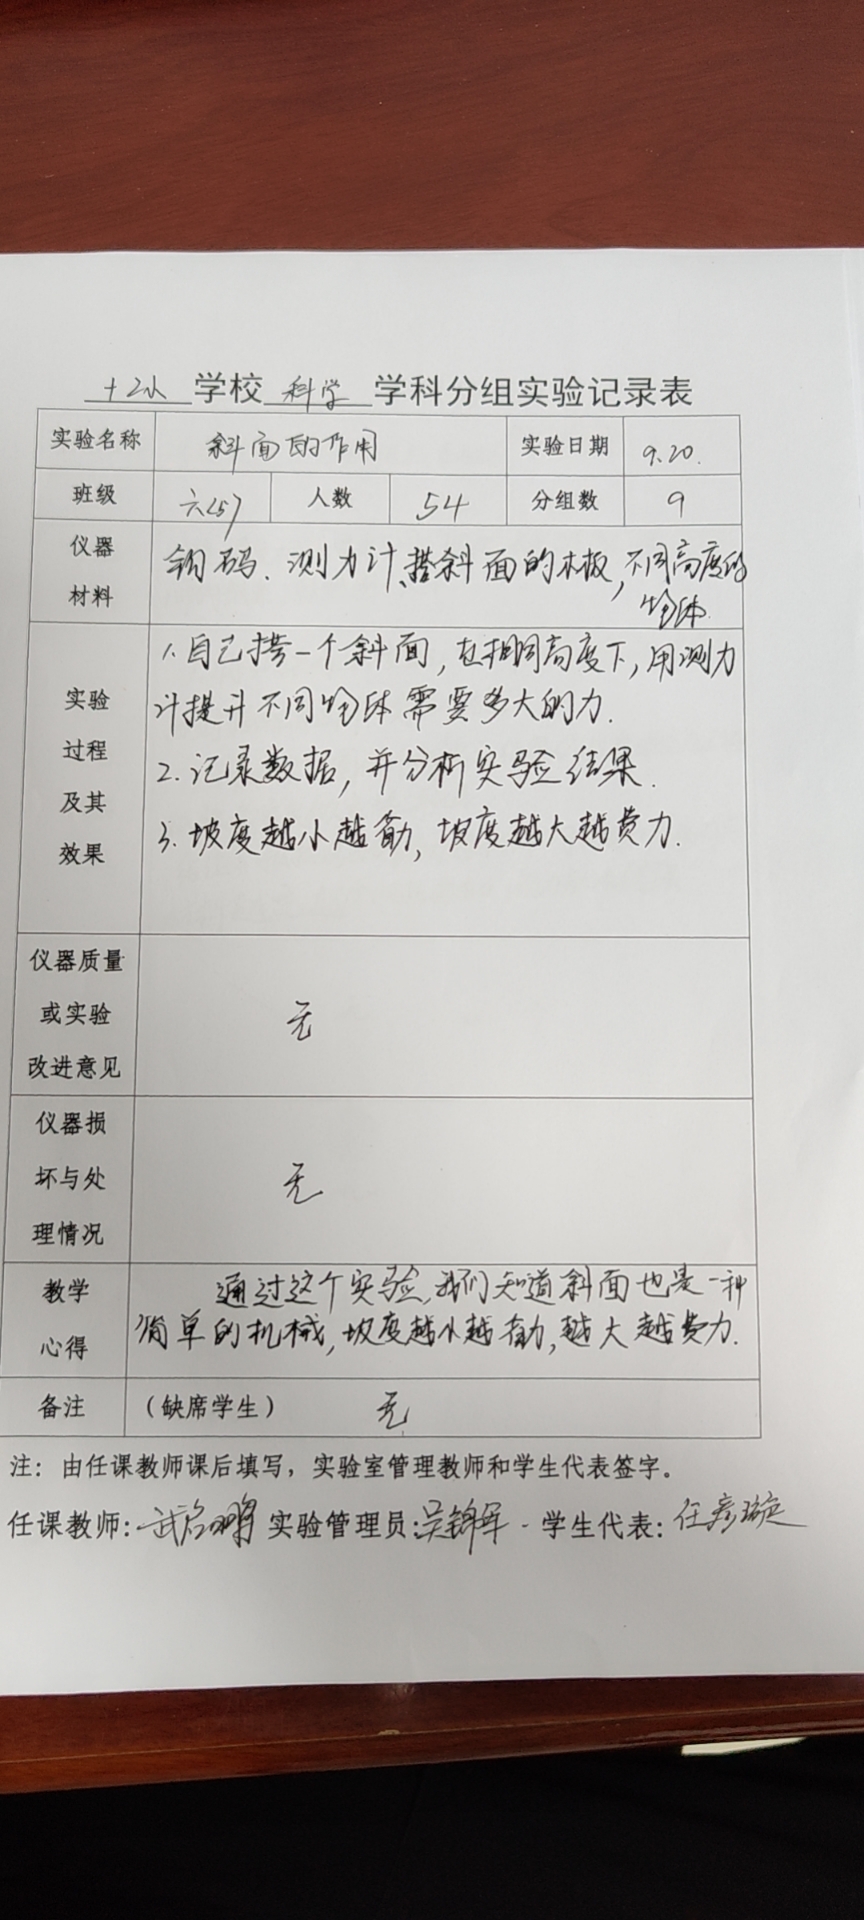 十二小 学校 科学 学科分组实验记录表
实验名称 斜面的作用 实验日期 9.20.
班级 六(5) 人数 54 分组数 9
仪器材料 钩码、测力计、搭斜面的木板,不同高度的
物体
实验过程及其效果
1.自己搭一个斜面,在相同高度下,用测力
计提升不同物体需要多大的力.
2.记录数据,并分析实验结果.
3.坡度越小越省力,坡度越大越费力.
仪器质量或实验改进意见 无
仪器损坏与处理情况 无
教学心得 通过这个实验,我们知道斜面也是一种
简单的机械,坡度越小越省力,越大越费力.
备注 (缺席学生) 无
注:由任课教师课后填写,实验室管理教师和学生代表签字。
任课教师: 实验管理员:吴锦军 学生代表:任彦璇